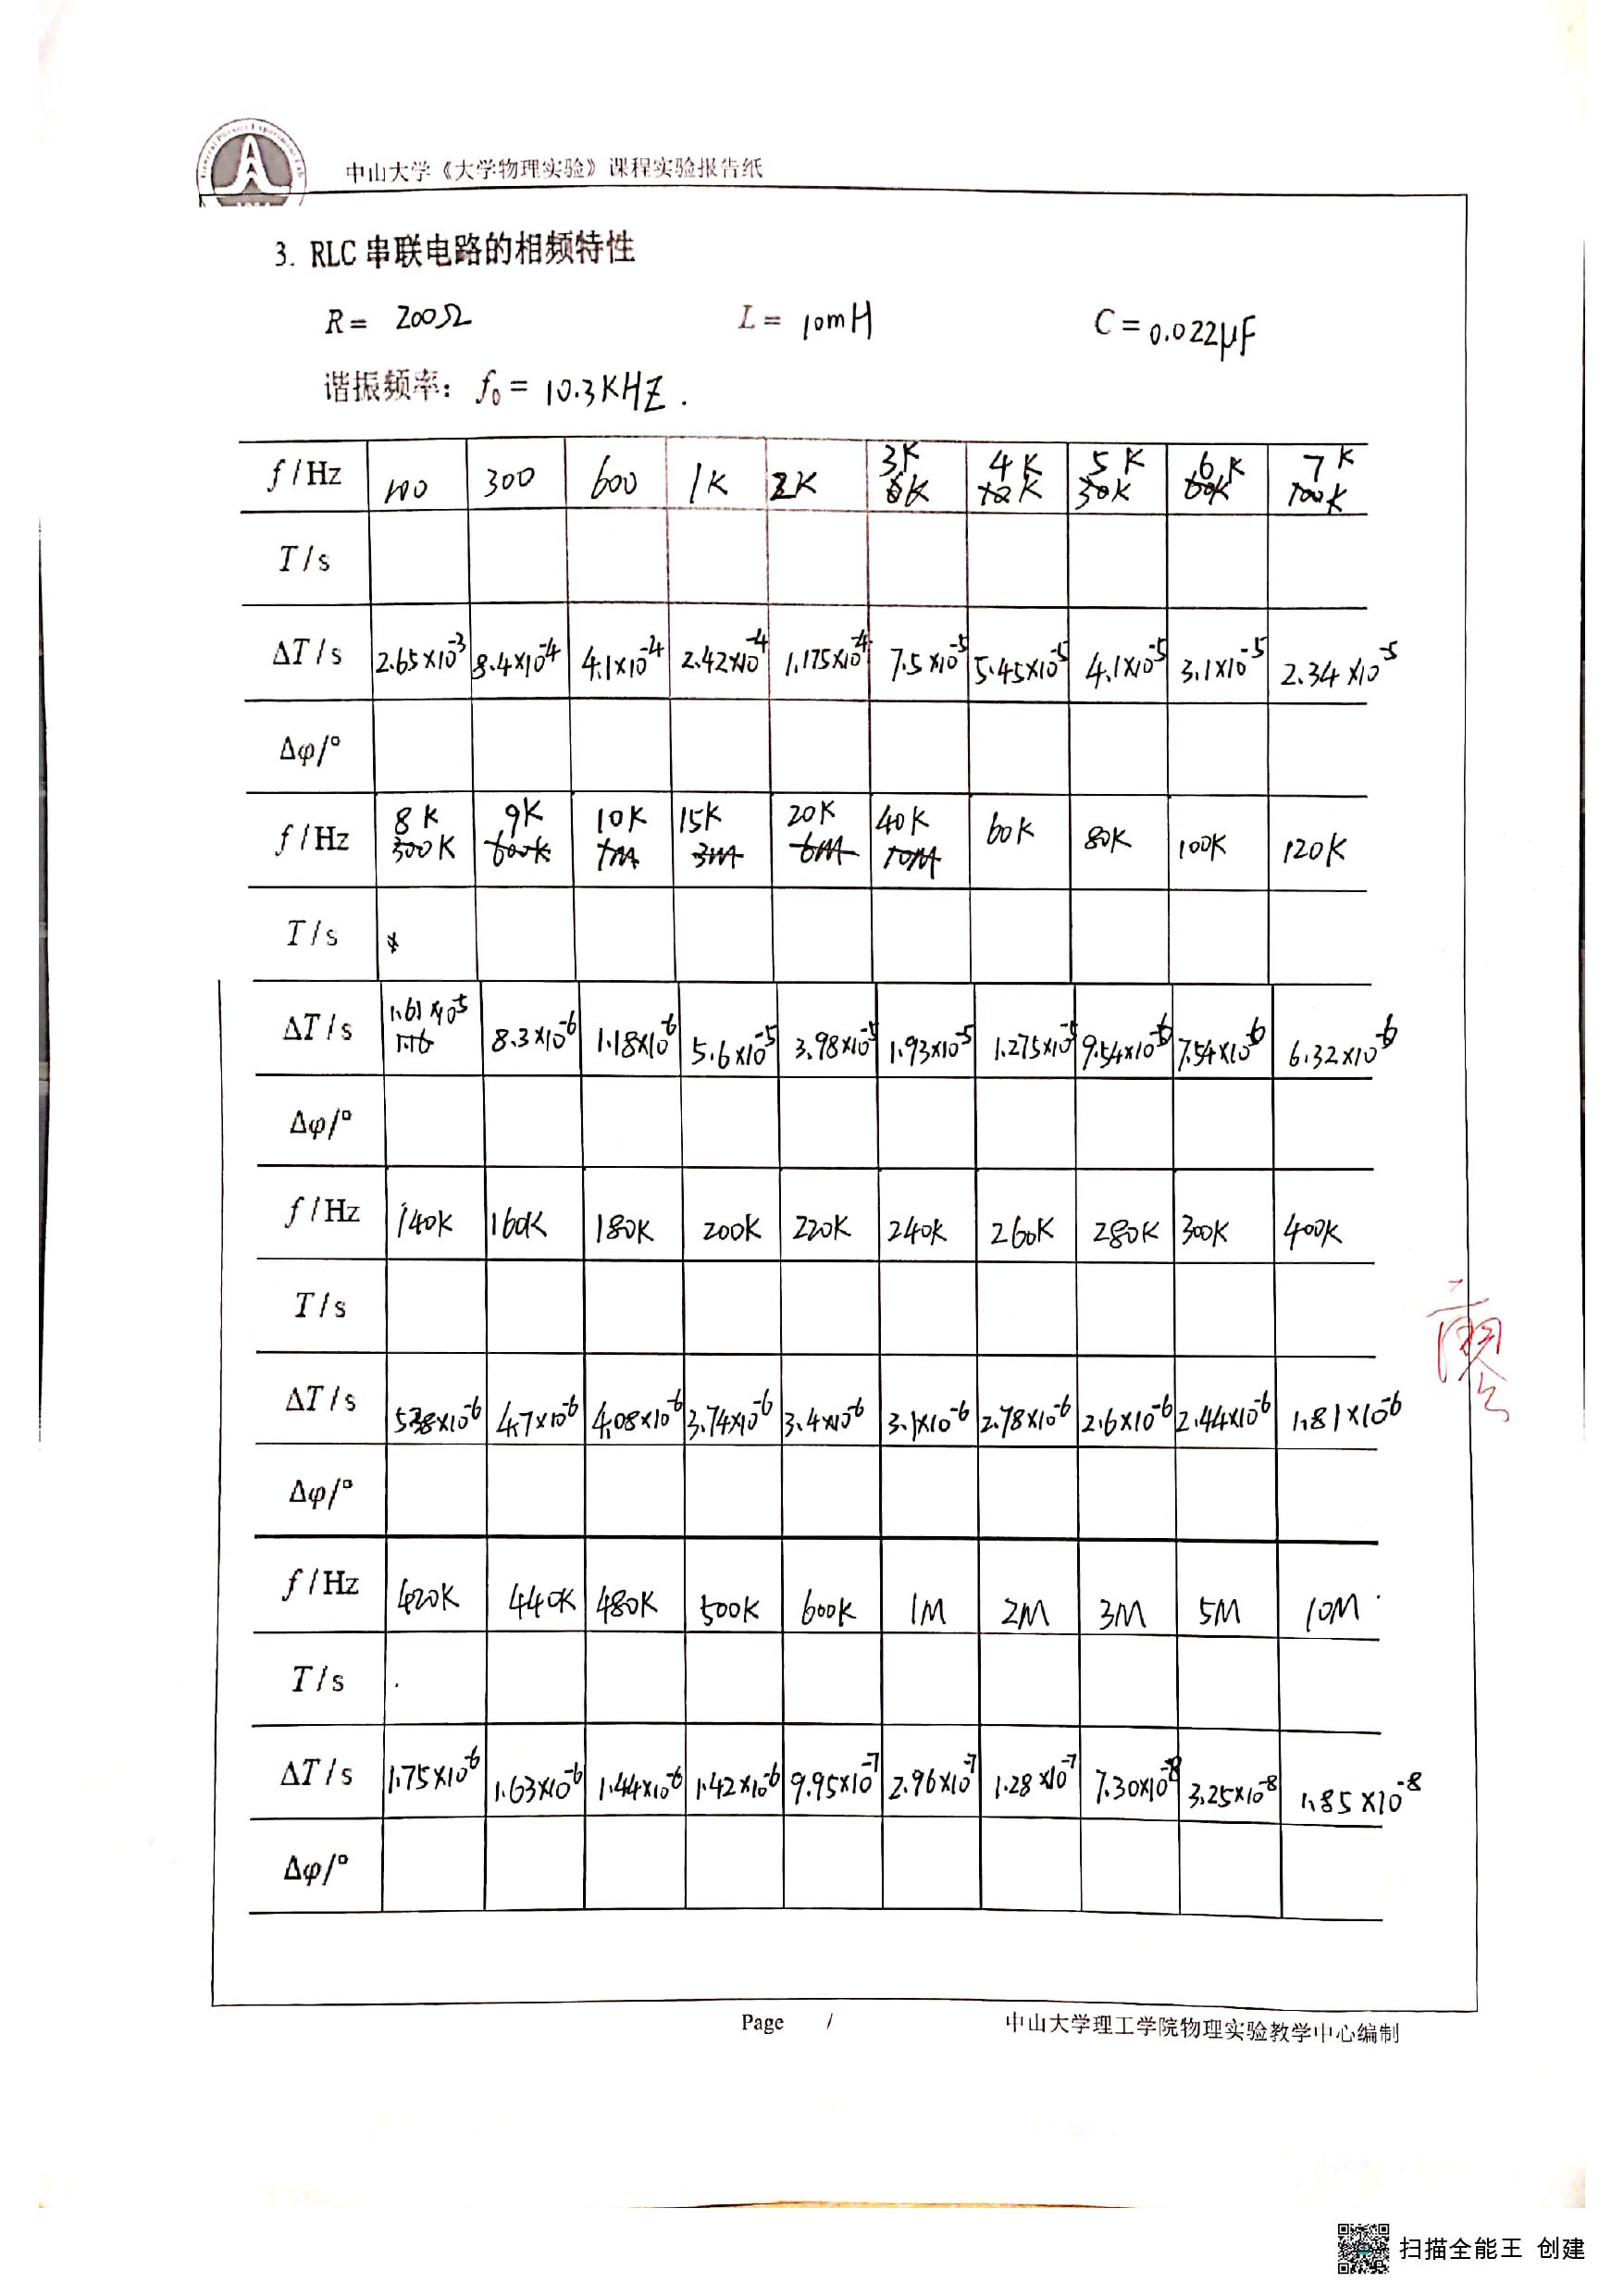 中山大学《大学物理实验》课程实验报告纸
3. RLC 串联电路的相频特性
R = 200Ω L = 10mH C = 0.022μF
谐振频率: f₀ = 10.3KHZ.
f / Hz 100 300 600 1K 2K 3K 4K 5K 6K 7K
T / s
ΔT / s 2.65×10⁻³ 8.4×10⁻⁴ 4.1×10⁻⁴ 2.42×10⁻⁴ 1.175×10⁻⁴ 7.5×10⁻⁵ 5.45×10⁻⁵ 4.1×10⁻⁵ 3.1×10⁻⁵ 2.34×10⁻⁵
Δφ/°
f / Hz 8K 9K 10K 15K 20K 40K 60K 80K 100K 120K
T / s
ΔT / s 1.61×10⁻⁵ 8.3×10⁻⁶ 1.18×10⁻⁶ 5.6×10⁻⁵ 3.98×10⁻⁵ 1.93×10⁻⁵ 1.275×10⁻⁵ 9.54×10⁻⁶ 7.54×10⁻⁶ 6.32×10⁻⁶
Δφ/°
f / Hz 140K 160K 180K 200K 220K 240K 260K 280K 300K 400K
T / s
ΔT / s 5.38×10⁻⁶ 4.7×10⁻⁶ 4.08×10⁻⁶ 3.74×10⁻⁶ 3.4×10⁻⁶ 3.1×10⁻⁶ 2.78×10⁻⁶ 2.6×10⁻⁶ 2.44×10⁻⁶ 1.81×10⁻⁶
Δφ/°
f / Hz 420K 440K 480K 500K 600K 1M 2M 3M 5M 10M
T / s
ΔT / s 1.75×10⁻⁶ 1.63×10⁻⁶ 1.44×10⁻⁶ 1.42×10⁻⁶ 9.95×10⁻⁷ 2.96×10⁻⁷ 1.28×10⁻⁷ 7.30×10⁻⁸ 3.25×10⁻⁸ 1.85×10⁻⁸
Δφ/°
Page / 中山大学理工学院物理实验教学中心编制
扫描全能王 创建